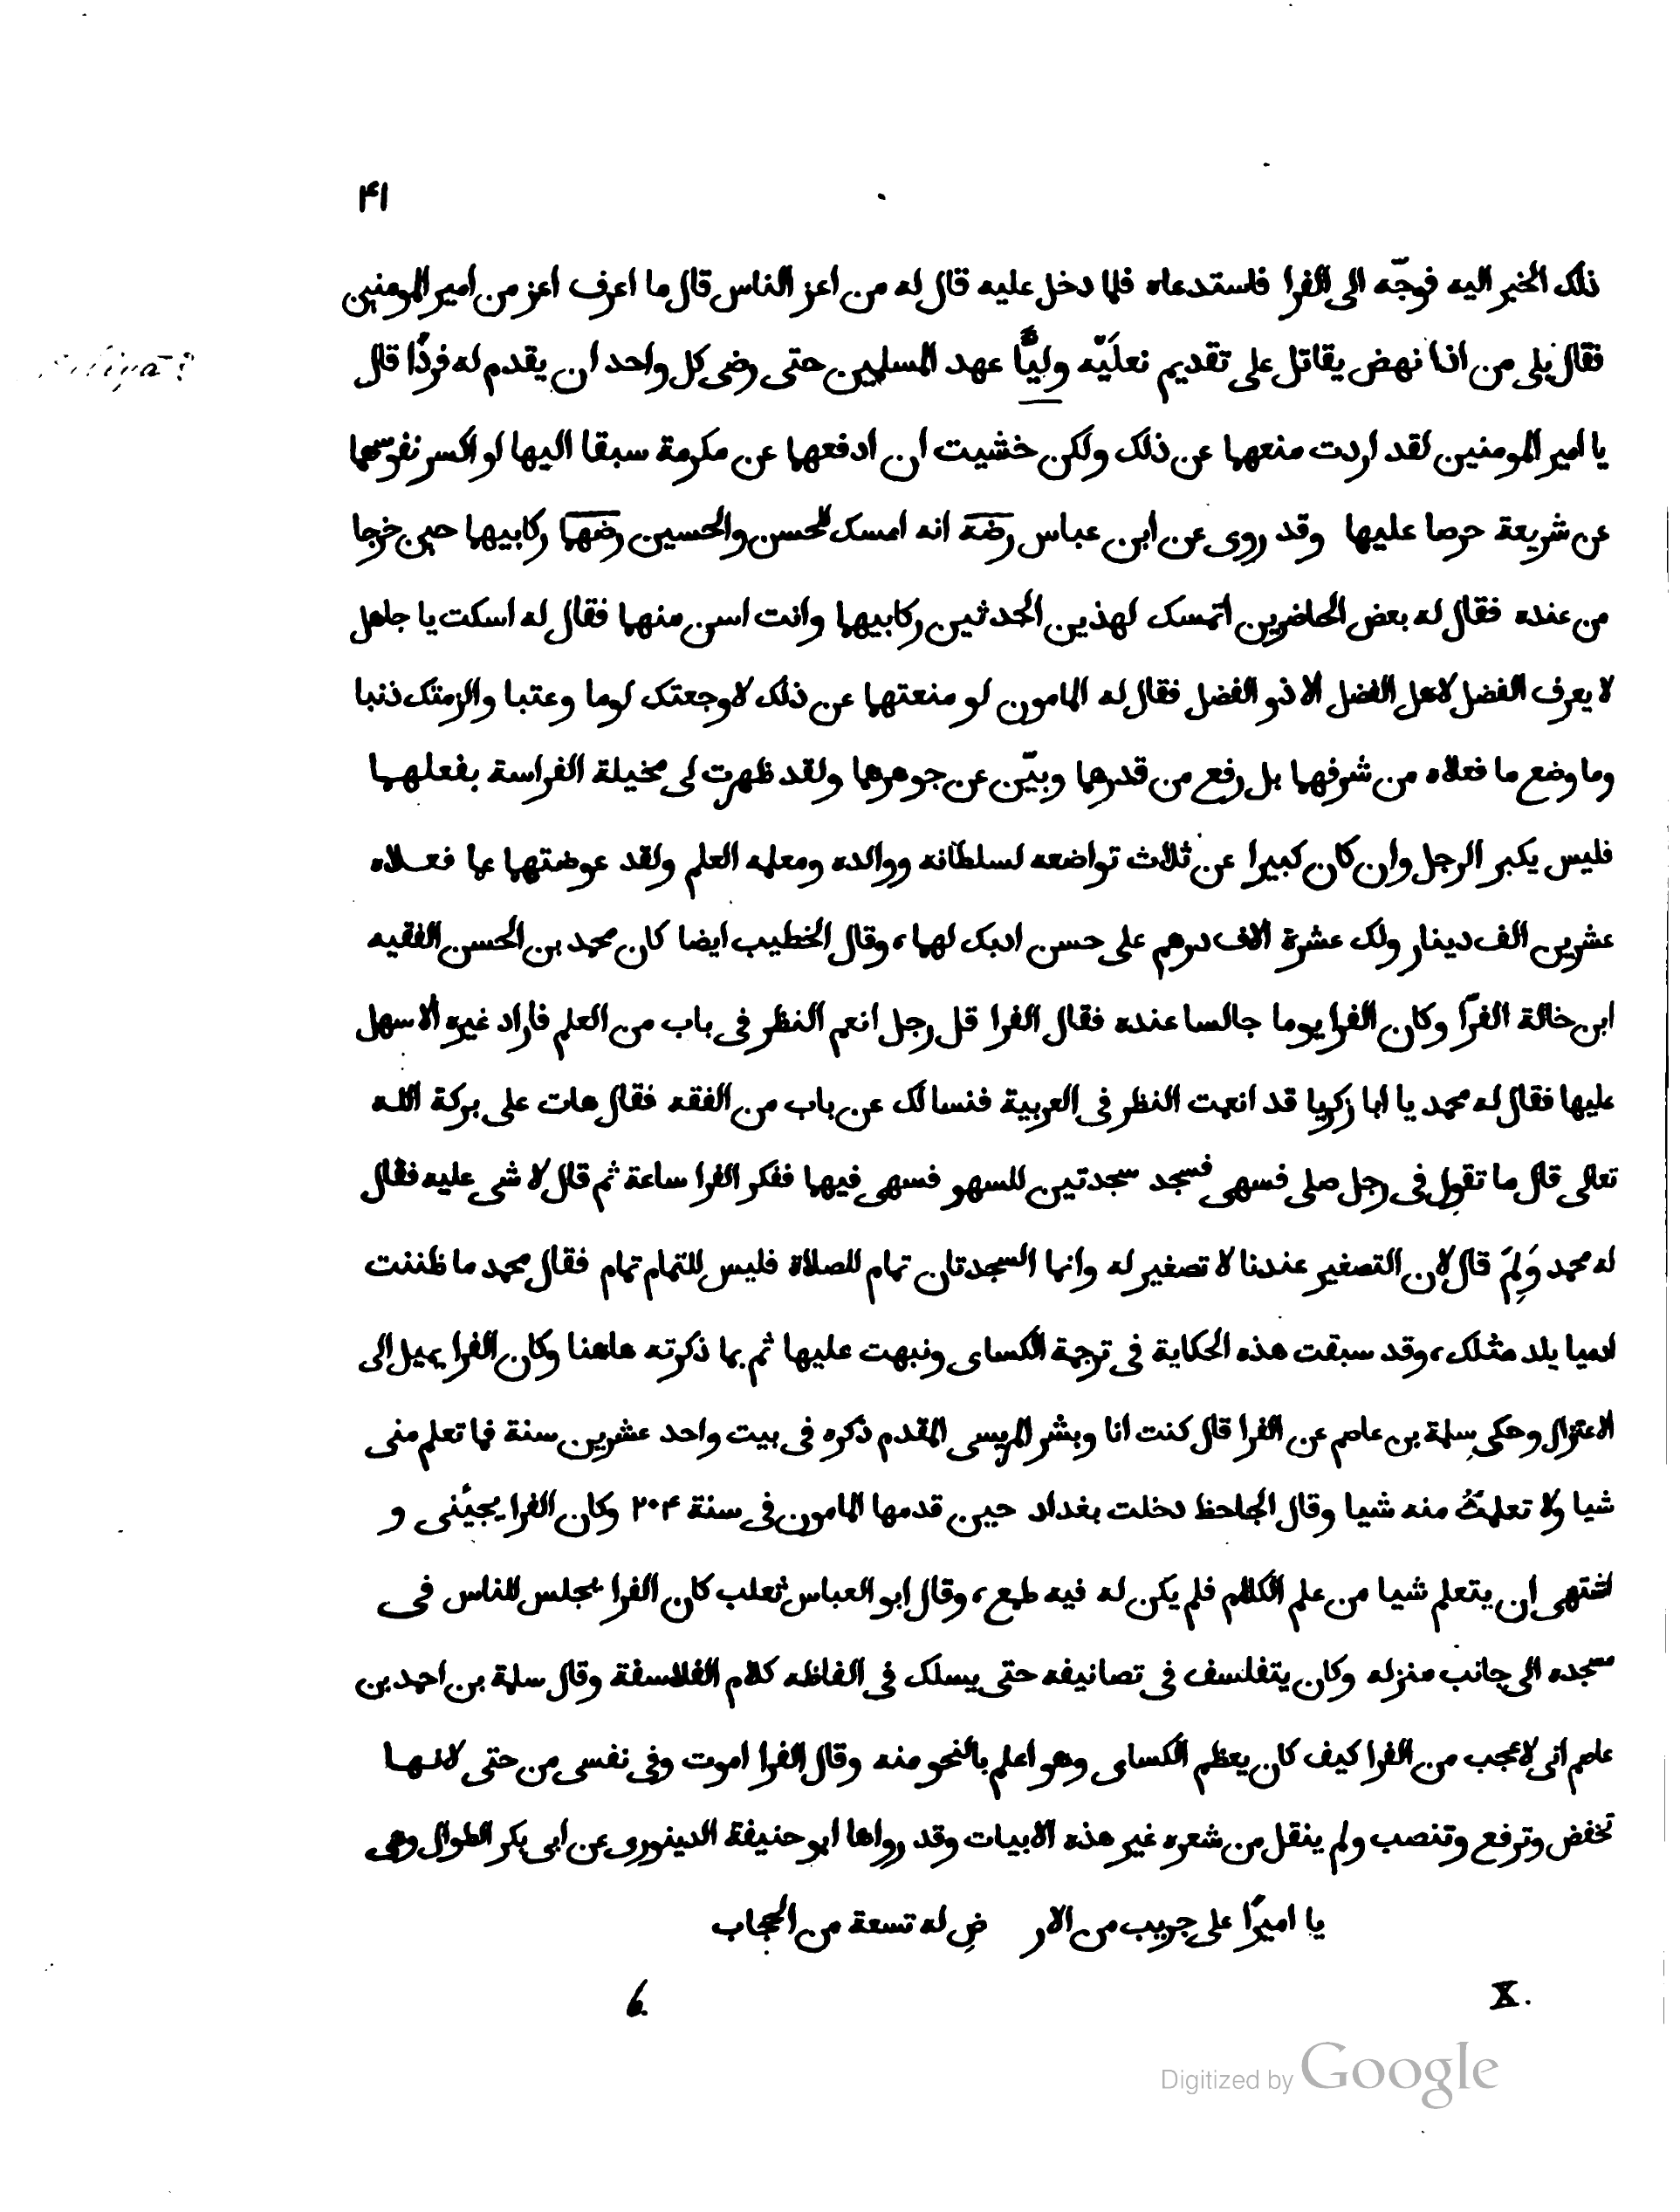 ۴۱
ذلك الخبر اليه فوجّه الى الفرا فاستدعاه فلما دخل عليه قال له من اعز الناس قال ما اعرف اعز من امير المومنين
فقال بلى من اذا نهض يقاتل على تقديم نعليّه وليًّا عهد المسلمين حتى رضى كل واحد ان يقدم له فردًا قال
يا امير المومنين لقد اردت منعهما عن ذلك ولكن خشيت ان ادفعهما عن مكرمة سبقا اليها او اكسر نفوسهما
عن شريعة حرصا عليها وقد روى عن ابن عباس رضه انه امسك للحسن والحسين رضهما ركابيهما حين خرجا
من عنده فقال له بعض الحاضرين اتمسك لهذين الحدثين ركابيهما وانت اسن منهما فقال له اسكت يا جاهل
لا يعرف الفضل لاهل الفضل الا ذو الفضل فقال له المامون لو منعتهما عن ذلك لاوجعتك لوما وعتبا والزمتك ذنبا
وما وضع ما فعلاه من شرفهما بل رفع من قدرهما وبيّن عن جوهرهما ولقد ظهرت لى مخيلة الفراسة بفعلهما
فليس يكبر الرجل وان كان كبيرا عن ثلاث تواضعه لسلطانه ووالده ومعلمه العلم ولقد عوضتهما مما فعلاه
عشرين الف دينار ولك عشرة الاف درهم على حسن ادبك لهما، وقال الخطيب ايضا كان محمد بن الحسن الفقيه
ابن خالة الفرّا وكان الفرا يوما جالسا عنده فقال الفرا قل رجل انعم النظر فى باب من العلم فاراد غيره الا سهل
عليها فقال له محمد يا ابا زكريا قد انعمت النظر فى العربية فنسالك عن باب من الفقه فقال هات على بركة الله
تعالى قال ما تقول فى رجل صلى فسهى فسجد سجدتين للسهو فسهى فيهما ففكر الفرا ساعة ثم قال لا شى عليه فقال
له محمد وَلِمَ قال لان التصغير عندنا لا تصغير له وانما السجدتان تمام للصلاة فليس للتمام تمام فقال محمد ما ظننت
ادميا يلد مثلك، وقد سبقت هذه الحكاية فى ترجمة الكساى ونبهت عليها ثم بما ذكرته هاهنا وكان الفرا يميل الى
الاعتزال وحكى سلمة بن عاصم عن الفرا قال كنت انا وبشر المريسى المقدم ذكره فى بيت واحد عشرين سنة فما تعلم منى
شيا ولا تعلمتُ منه شيا وقال الجاحظ دخلت بغداد حين قدمها المامون فى سنة ۲۰۴ وكان الفرا يجيّنى و
اشتهى ان يتعلم شيا من علم الكلام فلم يكن له فيه طبع، وقال ابو العباس ثعلب كان الفرا يجلس للناس فى
مسجده الى جانب منزله وكان يتفلسف فى تصانيفه حتى يسلك فى الفاظه كلام الفلاسفة وقال سلمة بن احمد بن
عاصم انى لاعجب من الفرا كيف كان يعظم الكساى وهو اعلم بالنحو منه وقال الفرا اموت وفى نفسى من حتى لانها
تخفض وترفع وتنصب ولم ينقل من شعره غير هذه الابيات وقد رواها ابو حنيفة الدينورى عن ابى بكر الطوال وهى
يا اميرًا على جريب من الار ضِ له تسعة من الحجاب
X. 6.
Digitized by Google